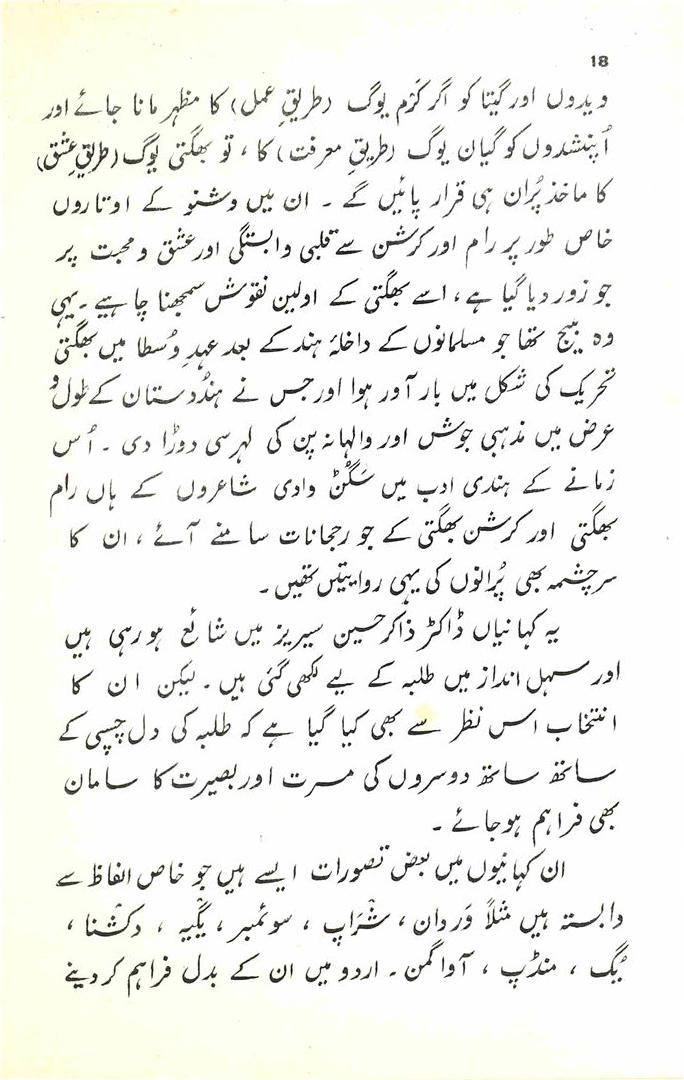 18
ویدوں اور گیتا کو اگر کَرم یوگ (طریقِ عمل) کا مظہر مانا جائے اور
اُپنشدوں کو گیان یوگ (طریقِ معرفت) کا، تو بھگتی یوگ (طریقِ عشق)
کا ماخذ پُران ہی قرار پائیں گے ۔ ان میں وشنو کے اوتاروں
خاص طور پر رام اور کرشن سے قلبی وابستگی اور عشق و محبت پر
جو زور دیا گیا ہے، اسے بھگتی کے اولین نقوش سمجھنا چاہیے ۔ یہی
وہ بیج تھا جو مسلمانوں کے داخلۂ ہند کے بعد عہدِ وُسطا میں بھگتی
تحریک کی شکل میں بار آور ہوا اور جس نے ہندُستان کے طول و
عرض میں مذہبی جوش اور والہانہ پن کی لہر سی دوڑا دی ۔ اُس
زمانے کے ہندی ادب میں سَگُنْ وادی شاعروں کے ہاں رام
بھگتی اور کرشن بھگتی کے جو رجحانات سامنے آئے، ان کا
سرچشمہ بھی پُرانوں کی یہی روایتیں تھیں ۔
یہ کہانیاں ڈاکٹر ذاکر حسین سیریز میں شائع ہو رہی ہیں
اور سہل انداز میں طلبہ کے لیے لکھی گئی ہیں ۔ لیکن ان کا
انتخاب اس نظر سے بھی کیا گیا ہے کہ طلبہ کی دل چسپی کے
ساتھ ساتھ دوسروں کی مسرت اور بصیرت کا سامان
بھی فراہم ہو جائے ۔
ان کہانیوں میں بعض تصورات ایسے ہیں جو خاص الفاظ سے
وابستہ ہیں مثلاً وَردان، شْرَاپ، سوئمبر، یگْیہ، دکشْنا،
یُگ، منڈپ، آواگمن ۔ اردو میں ان کے بدل فراہم کر دینے